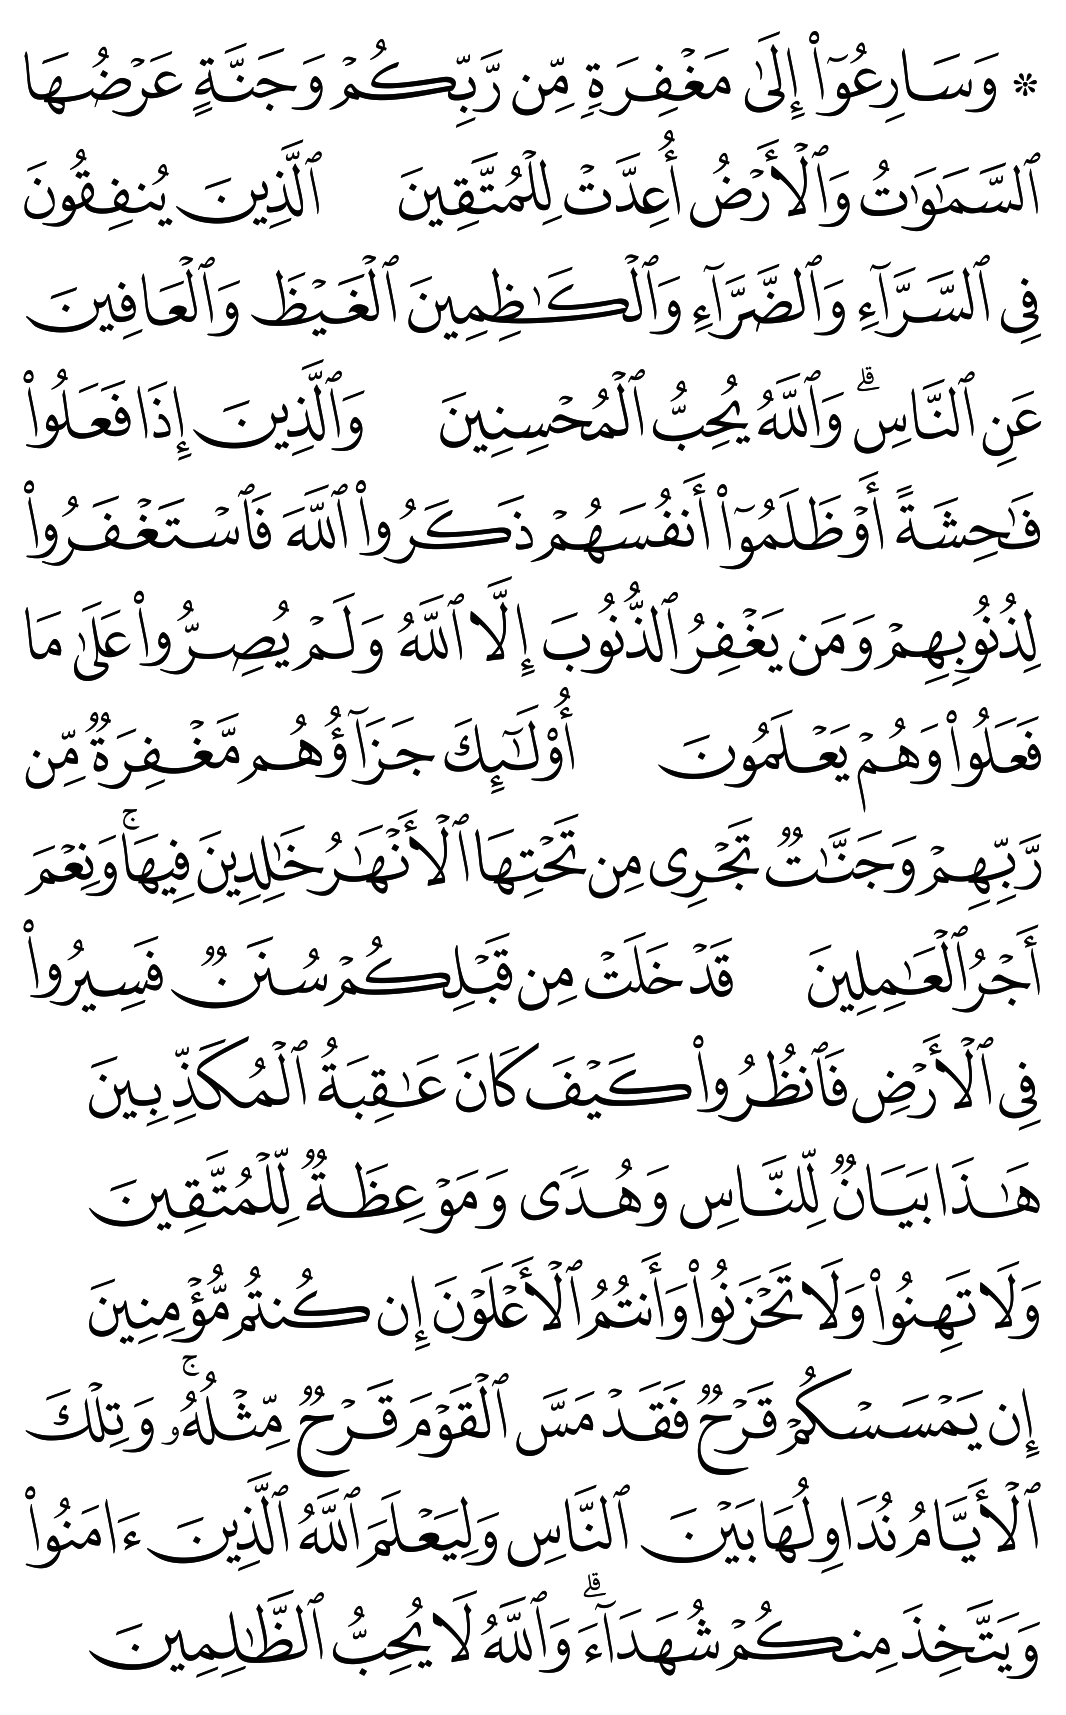 * وَسَارِعُوٓاْ إِلَىٰ مَغۡفِرَةٖ مِّن رَّبِّكُمۡ وَجَنَّةٍ عَرۡضُهَا
ٱلسَّمَٰوَٰتُ وَٱلۡأَرۡضُ أُعِدَّتۡ لِلۡمُتَّقِينَ ٱلَّذِينَ يُنفِقُونَ
فِي ٱلسَّرَّآءِ وَٱلضَّرَّآءِ وَٱلۡكَٰظِمِينَ ٱلۡغَيۡظَ وَٱلۡعَافِينَ
عَنِ ٱلنَّاسِۗ وَٱللَّهُ يُحِبُّ ٱلۡمُحۡسِنِينَ وَٱلَّذِينَ إِذَا فَعَلُواْ
فَٰحِشَةً أَوۡ ظَلَمُوٓاْ أَنفُسَهُمۡ ذَكَرُواْ ٱللَّهَ فَٱسۡتَغۡفَرُواْ
لِذُنُوبِهِمۡ وَمَن يَغۡفِرُ ٱلذُّنُوبَ إِلَّا ٱللَّهُ وَلَمۡ يُصِرُّواْ عَلَىٰ مَا
فَعَلُواْ وَهُمۡ يَعۡلَمُونَ أُوْلَٰٓئِكَ جَزَآؤُهُم مَّغۡفِرَةٞ مِّن
رَّبِّهِمۡ وَجَنَّٰتٞ تَجۡرِي مِن تَحۡتِهَا ٱلۡأَنۡهَٰرُ خَٰلِدِينَ فِيهَاۚ وَنِعۡمَ
أَجۡرُ ٱلۡعَٰمِلِينَ قَدۡ خَلَتۡ مِن قَبۡلِكُمۡ سُنَنٞ فَسِيرُواْ
فِي ٱلۡأَرۡضِ فَٱنظُرُواْ كَيۡفَ كَانَ عَٰقِبَةُ ٱلۡمُكَذِّبِينَ
هَٰذَا بَيَانٞ لِّلنَّاسِ وَهُدٗى وَمَوۡعِظَةٞ لِّلۡمُتَّقِينَ
وَلَا تَهِنُواْ وَلَا تَحۡزَنُواْ وَأَنتُمُ ٱلۡأَعۡلَوۡنَ إِن كُنتُم مُّؤۡمِنِينَ
إِن يَمۡسَسۡكُمۡ قَرۡحٞ فَقَدۡ مَسَّ ٱلۡقَوۡمَ قَرۡحٞ مِّثۡلُهُۥۚ وَتِلۡكَ
ٱلۡأَيَّامُ نُدَاوِلُهَا بَيۡنَ ٱلنَّاسِ وَلِيَعۡلَمَ ٱللَّهُ ٱلَّذِينَ ءَامَنُواْ
وَيَتَّخِذَ مِنكُمۡ شُهَدَآءَۗ وَٱللَّهُ لَا يُحِبُّ ٱلظَّٰلِمِينَ